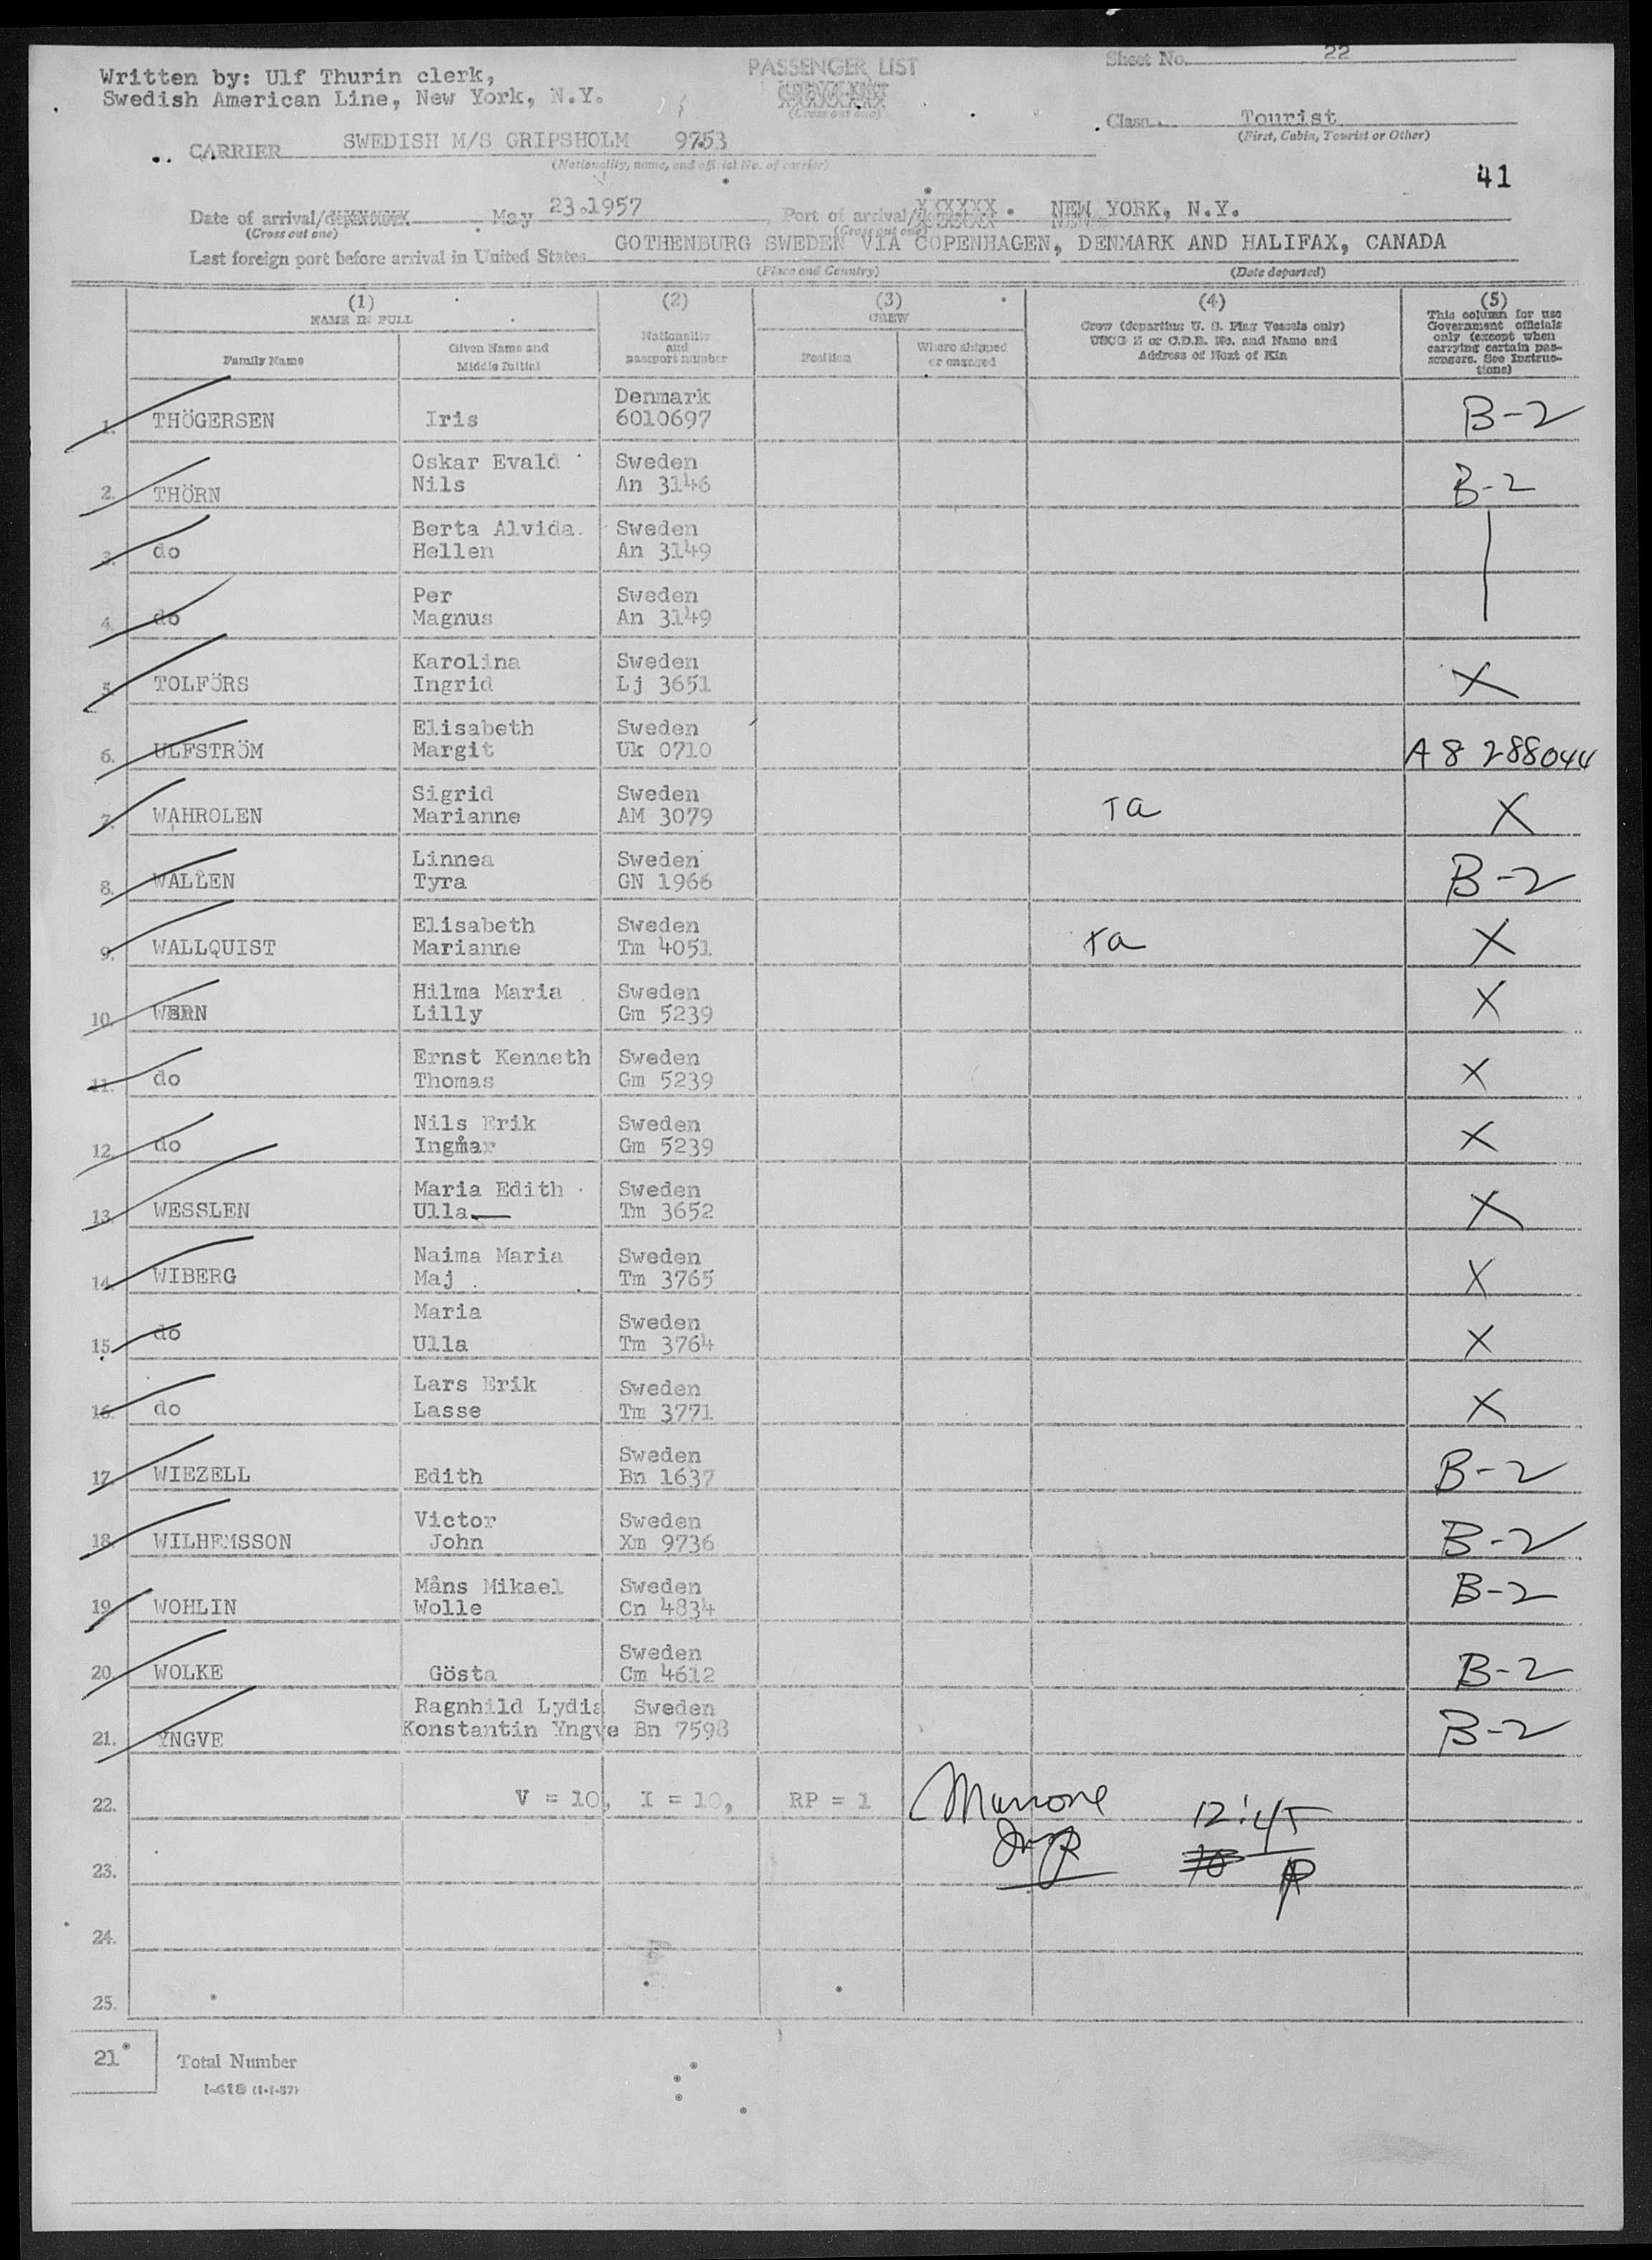 Sheet No. 22
Written by: Ulf Thurin clerk,
Swedish American Line, New York, N.Y.
PASSENGER LIST
(Cross out one)
Class Tourist
(First, Cabin, Tourist or Other)
CARRIER SWEDISH M/S GRIPSHOLM 9753
(Nationality, name, and official No. of carrier)
41
Date of arrival/ May 23.1957 Port of arrival/ XXXXXX. NEW YORK, N.Y.
(Cross out one) (Cross out one)
Last foreign port before arrival in United States GOTHENBURG SWEDEN VIA COPENHAGEN, DENMARK AND HALIFAX, CANADA
(Place and Country) (Date departed)
(1) NAME IN FULL
Family Name
Given Name and Middle Initial
(2) Nationality and passport number
(3) CREW
Position
Where shipped or engaged
(4)
Crew (departing U. S. Flag Vessels only)
USCG Z or C.D.B. No. and Name and
Address of Next of Kin
(5)
This column for use
Government officials
only (except when
carrying certain pas-
sengers. See Instruc-
tions)
Denmark
1. THÖGERSEN Iris 6010697 B-2
Oskar Evald Sweden
2. THÖRN Nils An 3146 B-2
Berta Alvida. Sweden
3. do Hellen An 3149
Per Sweden
4. do Magnus An 3149
Karolina Sweden
5. TOLFÖRS Ingrid Lj 3651 X
Elisabeth Sweden
6. ULFSTRÖM Margit Uk 0710 A8 288044
Sigrid Sweden
7. WAHROLEN Marianne AM 3079 Ta X
Linnea Sweden
8. WALLEN Tyra GN 1966 B-2
Elisabeth Sweden
9. WALLQUIST Marianne Tm 4051 Ta X
Hilma Maria Sweden
10. WERN Lilly Gm 5239 X
Ernst Kenneth Sweden
11. do Thomas Gm 5239 X
Nils Erik Sweden
12. do Ingmar Gm 5239 X
Maria Edith Sweden
13. WESSLEN Ulla Tm 3652 X
Naima Maria Sweden
14. WIBERG Maj Tm 3765 X
Maria Sweden
15. do Ulla Tm 3764 X
Lars Erik Sweden
16. do Lasse Tm 3771 X
Sweden
17. WIEZELL Edith Bn 1637 B-2
Victor Sweden
18. WILHEMSSON John Xm 9736 B-2
Måns Mikael Sweden
19. WOHLIN Wolle Cn 4834 B-2
Sweden
20. WOLKE Gösta Cm 4612 B-2
Ragnhild Lydia Sweden
21. YNGVE Konstantin Yngve Bn 7598 B-2
22. V = 10, I = 10, RP = 1 12:45
23.
24.
25.
21 Total Number
I-418 (1-1-57)